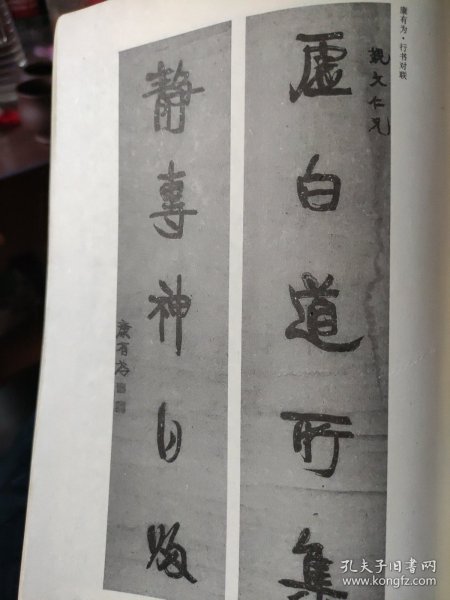 康有为·行书对联
虚白道所集
静専神自
文仁兄
康有為
孔夫子旧书网
www.kongfz.com